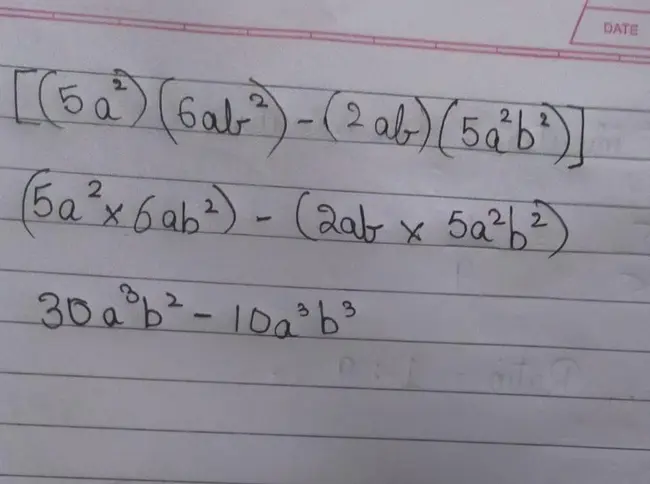 DATE
[(5a²)(6ab²)-(2ab)(5a²b²)]
(5a²×6ab²) - (2ab × 5a²b²)
30a³b² - 10a³b³